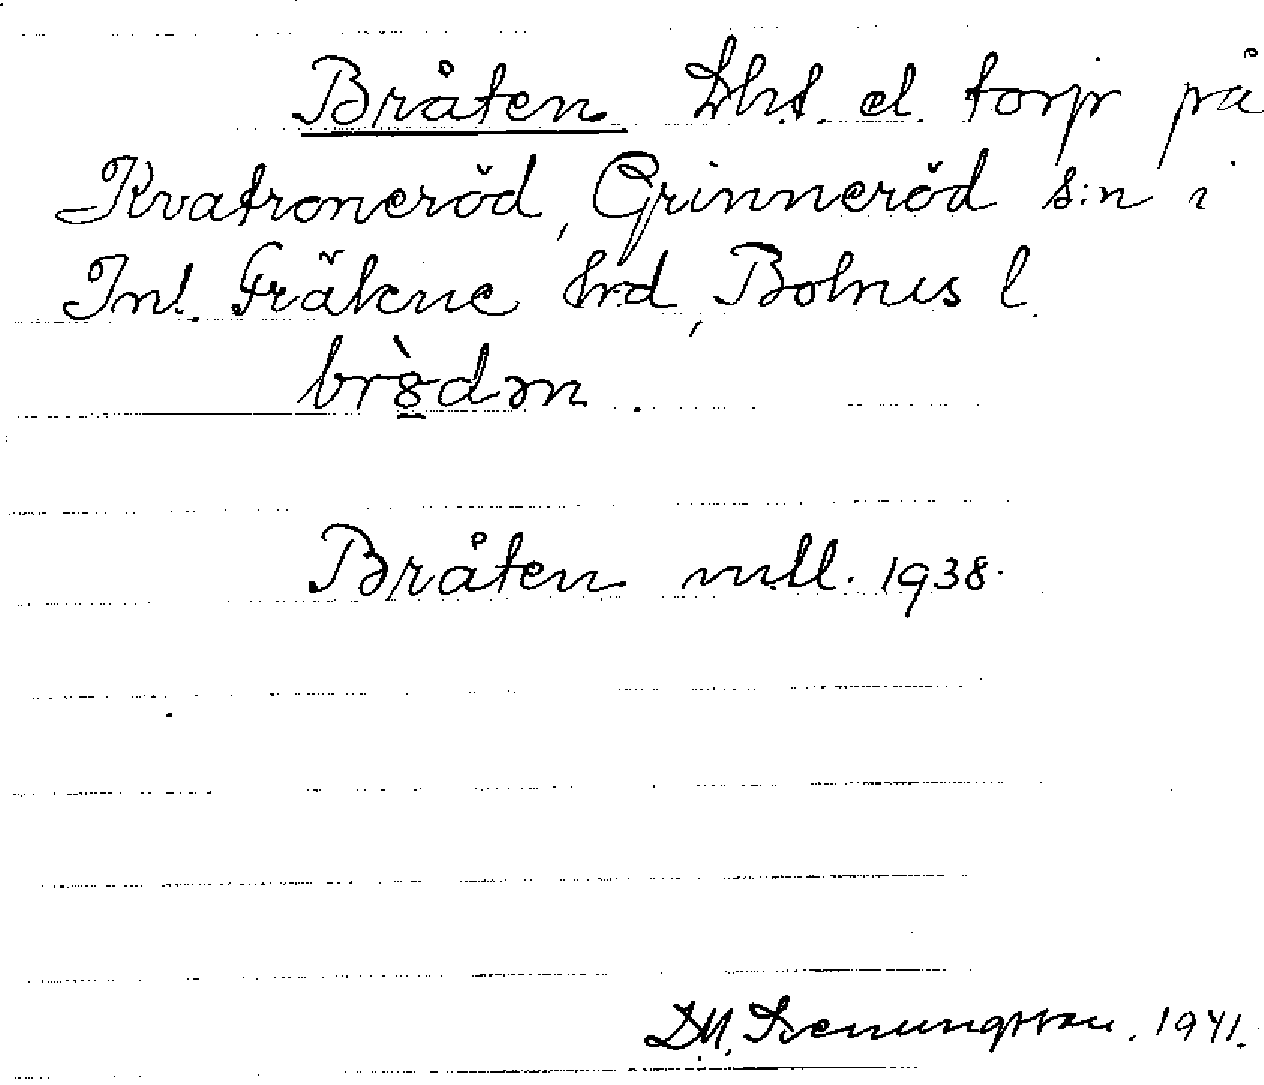 Bråten Lht. el. torp på
Kvatroneröd, Grinneröd s:n i
Inl. Fräkne hrd, Bohus l.
brò̱dən.
Bråten mtl. 1938.
1941.